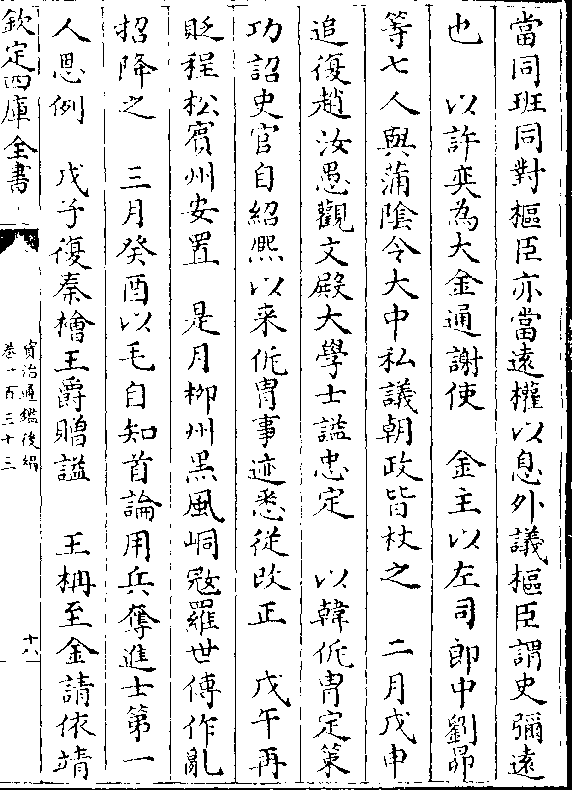 當同班同對樞臣亦當遠權以息外議樞臣謂史彌遠
也　以許奕為大金通謝使　金主以左司郎中劉昂
等七人與蒲陰令大中私議朝政皆杖之　二月戊申
追復趙汝愚觀文殿大學士諡忠定　以韓侂胄定策
功詔史官自紹熈以来侂胄事迹悉從改正　戊午再
貶程松賓州安置　是月郴州黑風峒寇羅世傳作亂
招降之　三月癸酉以毛自知首論用兵奪進士第一
人恩例　戊子復秦檜王爵贈諡　王柟至金請依靖
欽定四庫全書
資治通鑑後編
卷一百三十三
十六